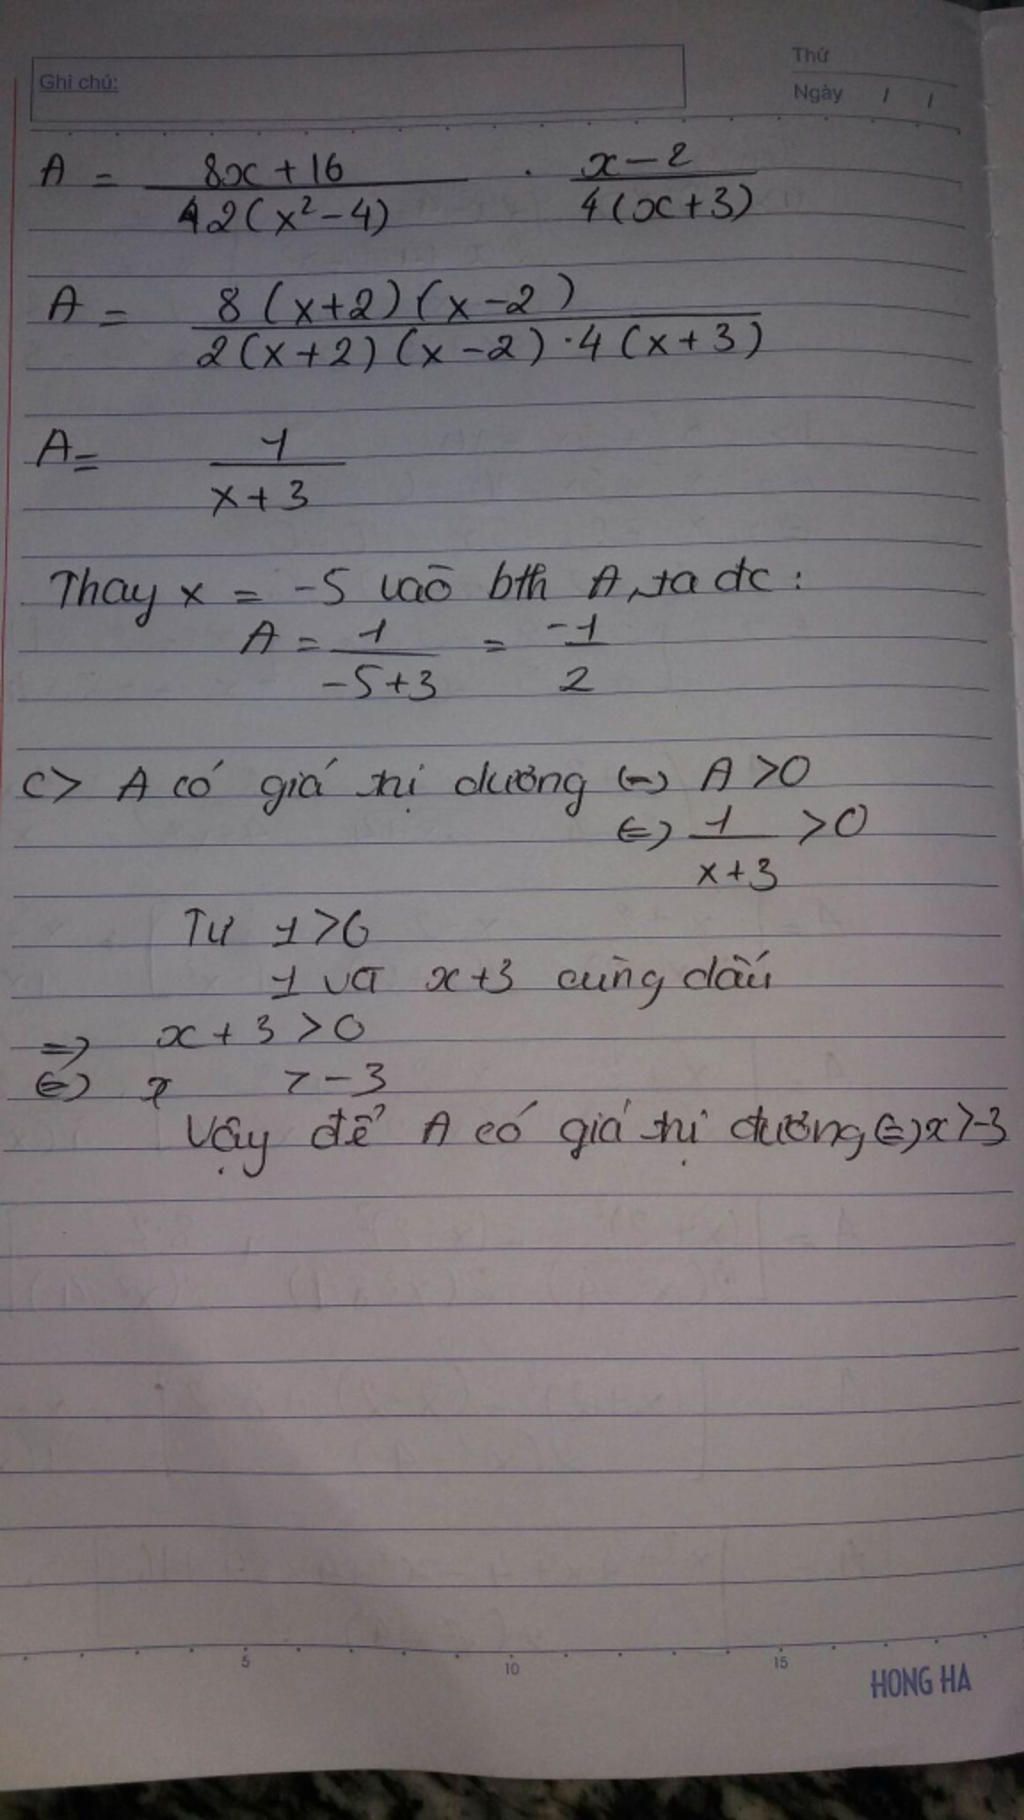 Ghi chú:
Thứ
Ngày / /
A = 8x + 16 / 2(x² - 4) . x - 2 / 4(x + 3)
A = 8(x+2)(x-2) / 2(x+2)(x-2).4(x+3)
A = 1 / x + 3
Thay x = -5 vaò bth A, ta đc :
A = 1 / -5+3 = -1 / 2
c> A có giá trị dương (=) A > 0
(=) 1 / x+3 > 0
Từ 1 > 0
1 và x+3 cùng dấu
=> x + 3 > 0
(=) x > -3
Vậy để A có giá trị dương (=) x > -3
5 10 15
HONG HA